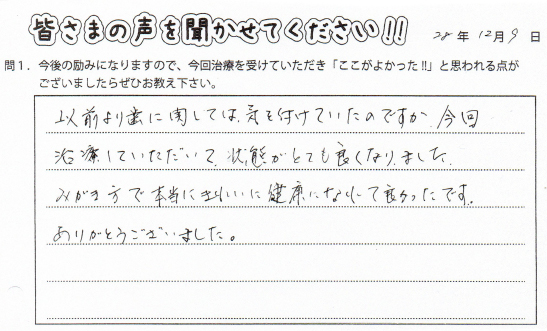 皆さまの声を聞かせてください!! 28年12月9日
問1. 今後の励みになりますので、今回治療を受けていただき「ここがよかった!!」と思われる点が
ございましたらぜひお教え下さい。
以前より歯に関しては、気を付けていたのですが、今回
治療していただいて、状態がとても良くなりました。
みがき方で本当にきれいに健康になれて良かったです。
ありがとうございました。